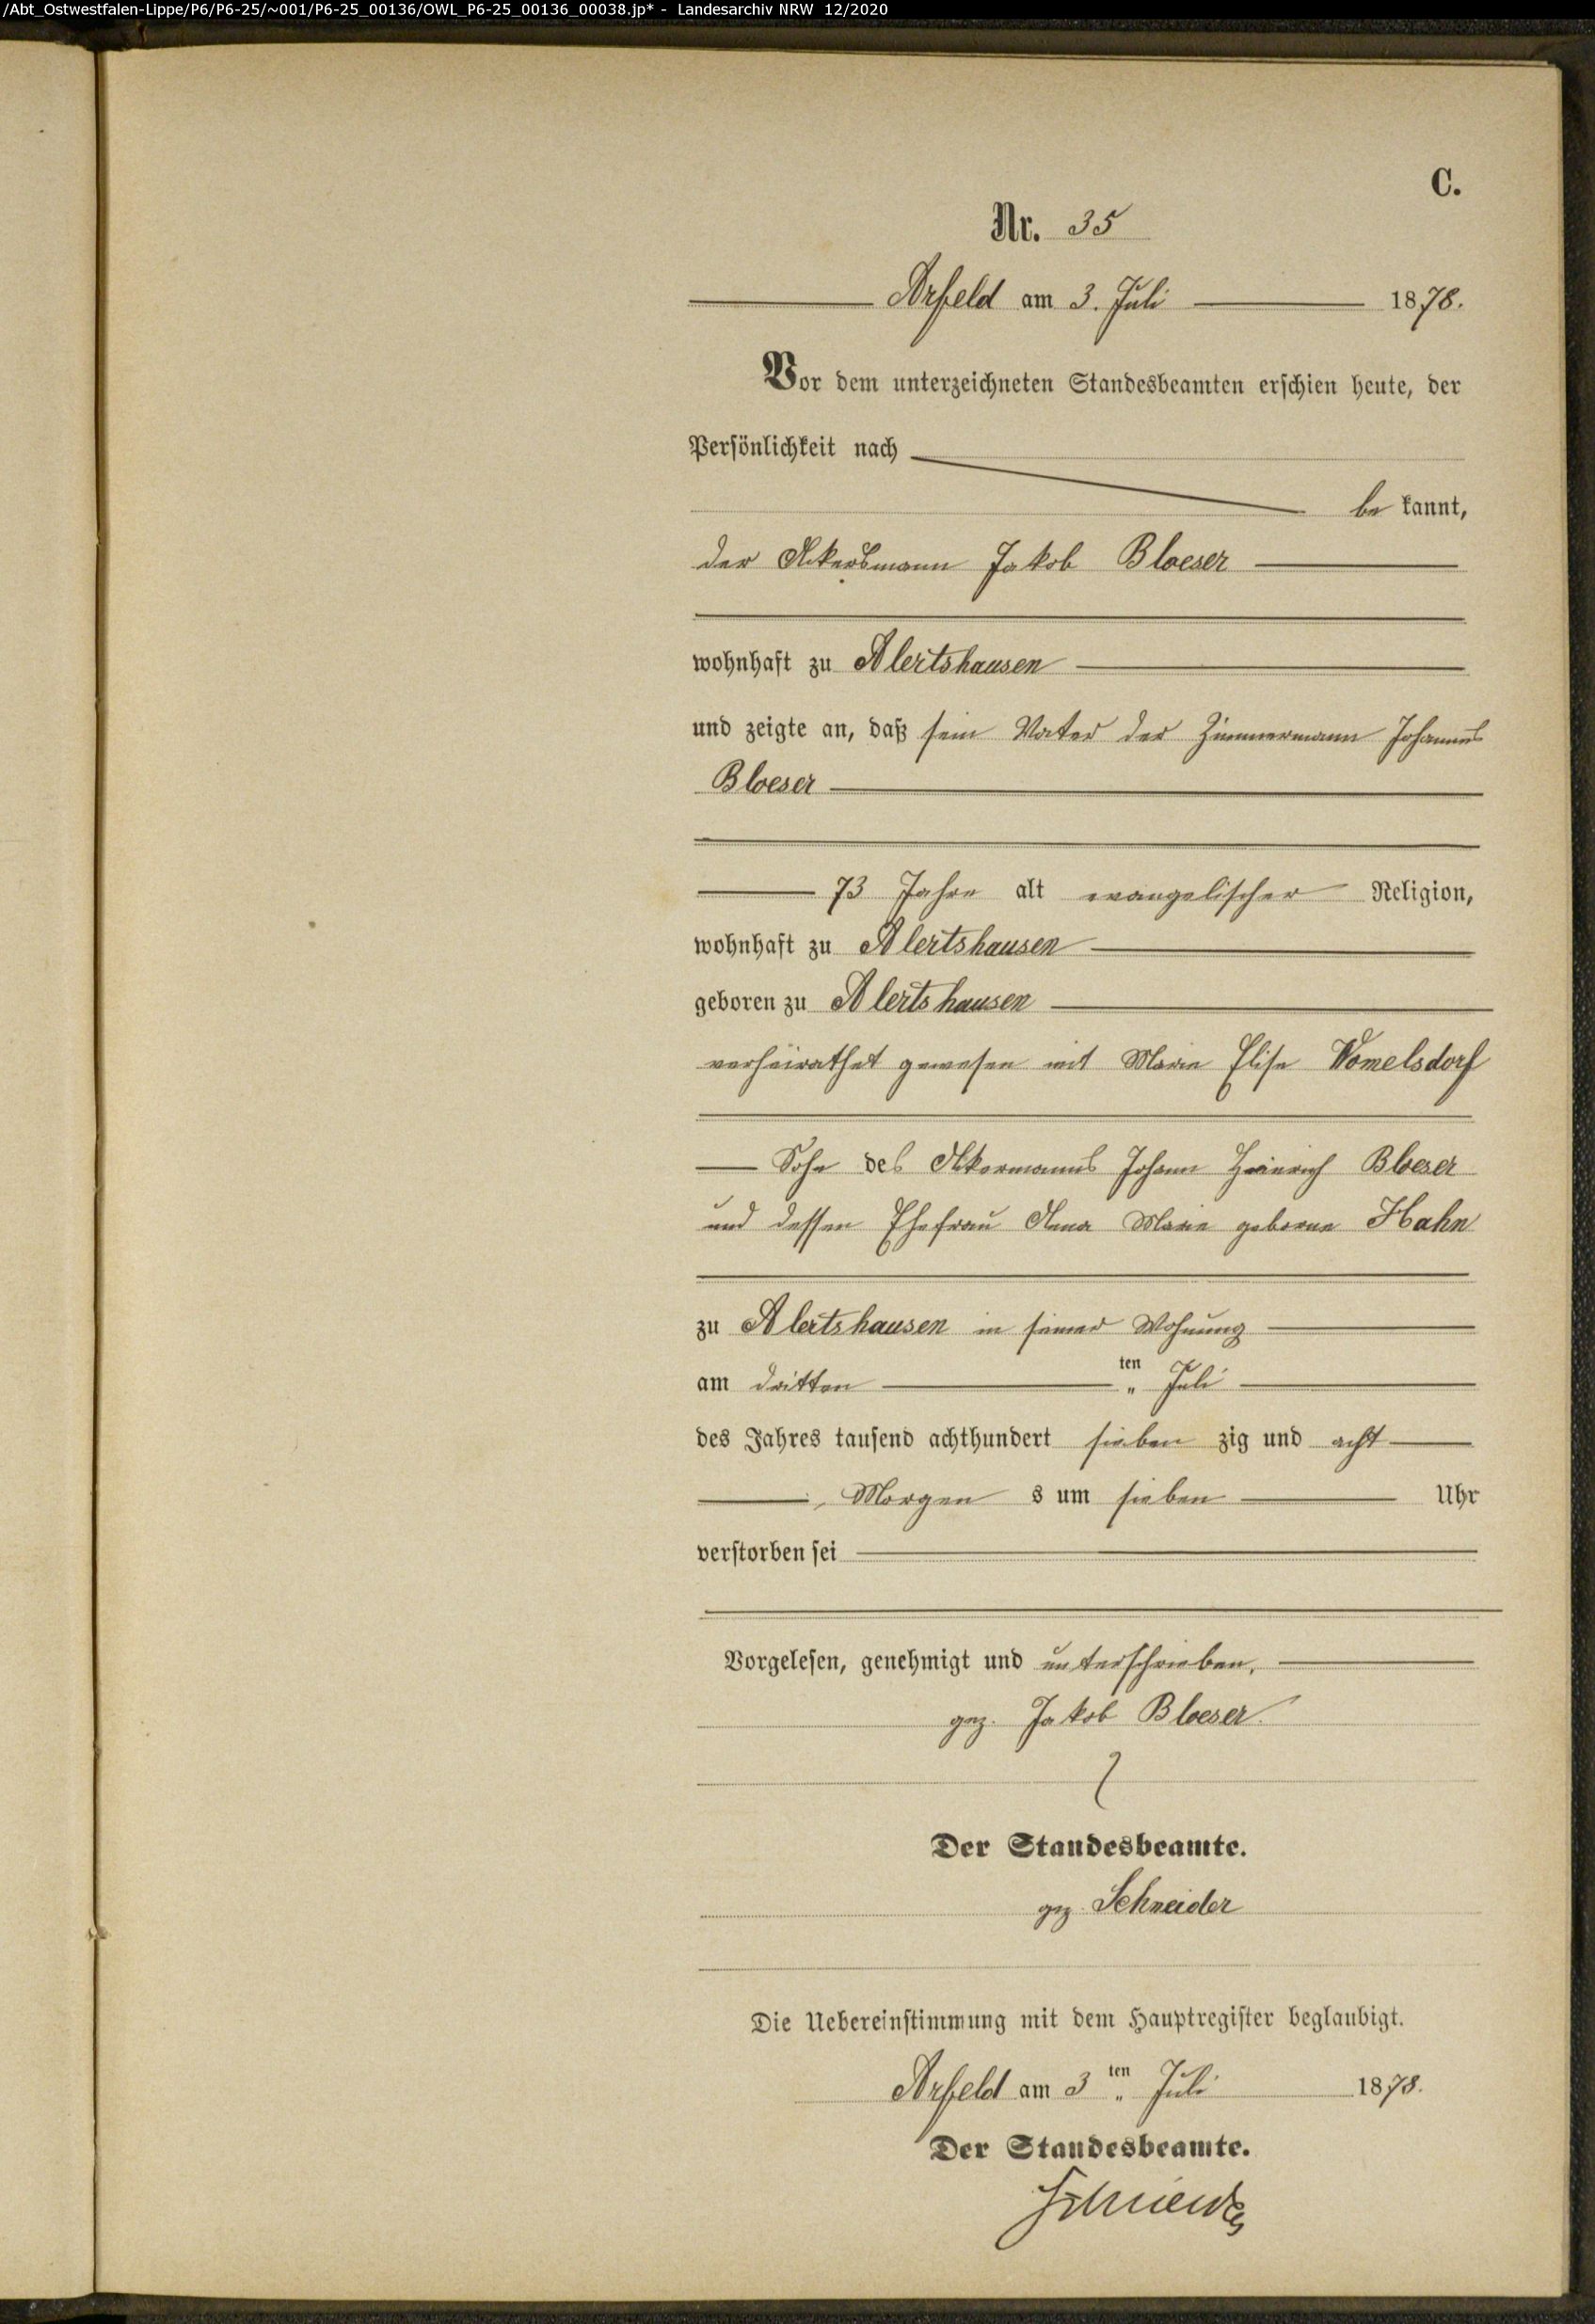 /Abt_Ostwestfalen-Lippe/P6/P6-25/~001/P6-25_00136/OWL_P6-25_00136_00038.jp* - Landesarchiv NRW 12/2020
C.
Nr. 35
Arfeld am 3. Juli 1878.
Vor dem unterzeichneten Standesbeamten erschien heute, der
Persönlichkeit nach
be kannt,
der Ackersmann Jakob Bloeser
wohnhaft zu Alertshausen
und zeigte an, daß sein Vater der Zimmermann Johannes
Bloeser
73 Jahre alt evangelischer Religion,
wohnhaft zu Alertshausen
geboren zu Alertshausen
verheirathet gewesen mit Marie Elise Womelsdorf
Sohn des Ackermanns Johann Heinrich Bloeser
und dessen Ehefrau Anna Marie geborne Hahn
zu Alertshausen in seiner Wohnung
am dritten ten " Juli
des Jahres tausend achthundert sieben zig und acht
Morgen s um sieben Uhr
verstorben sei
Vorgelesen, genehmigt und unterschrieben.
gez. Jakob Bloeser
Der Standesbeamte.
gez. Schneider
Die Uebereinstimmung mit dem Hauptregister beglaubigt.
Arfeld am 3 ten " Juli 1878.
Der Standesbeamte.
Schneider